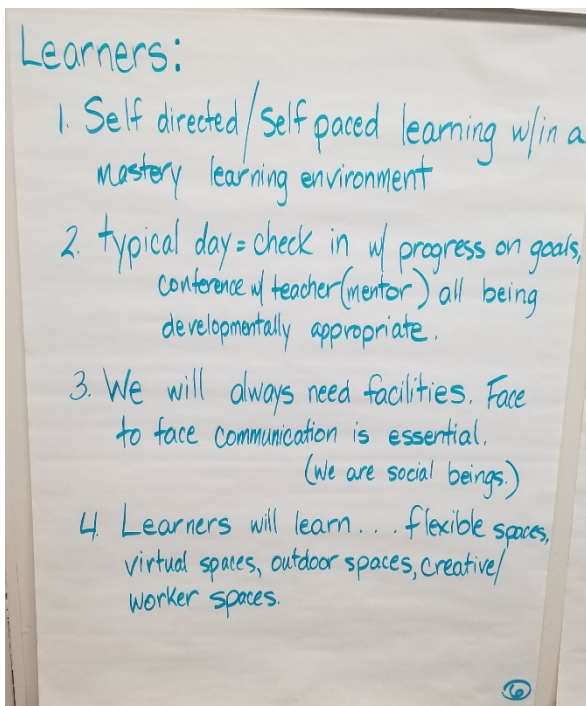 Learners:
1. Self directed/Self paced learning w/in a
mastery learning environment
2. typical day = check in w/ progress on goals,
conference w/ teacher (mentor) all being
developmentally appropriate.
3. We will always need facilities. Face
to face communication is essential.
(We are social beings.)
4. Learners will learn... flexible spaces,
virtual spaces, outdoor spaces, creative/
worker spaces.
6